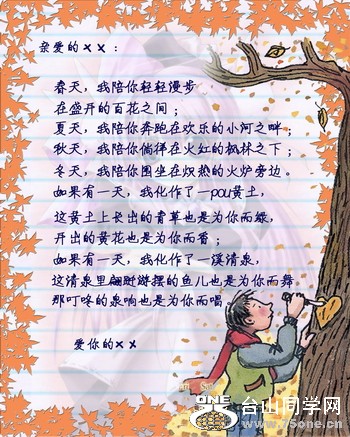 亲爱的××：
春天，我陪你轻轻漫步
在盛开的百花之间；
夏天，我陪你奔跑在欢乐的小河之畔；
秋天，我陪你徜徉在火红的枫林之下；
冬天，我陪你围坐在炽热的火炉旁边。
如果有一天，我化作了一pou黄土，
这黄土上长出的青草也是为你而绿，
开出的黄花也是为你而香；
如果有一天，我化作了一溪清泉，
这清泉里翩跹游摆的鱼儿也是为你而舞
那叮咚的泉响也是为你而唱。
爱你的××
ONE
台山同学网